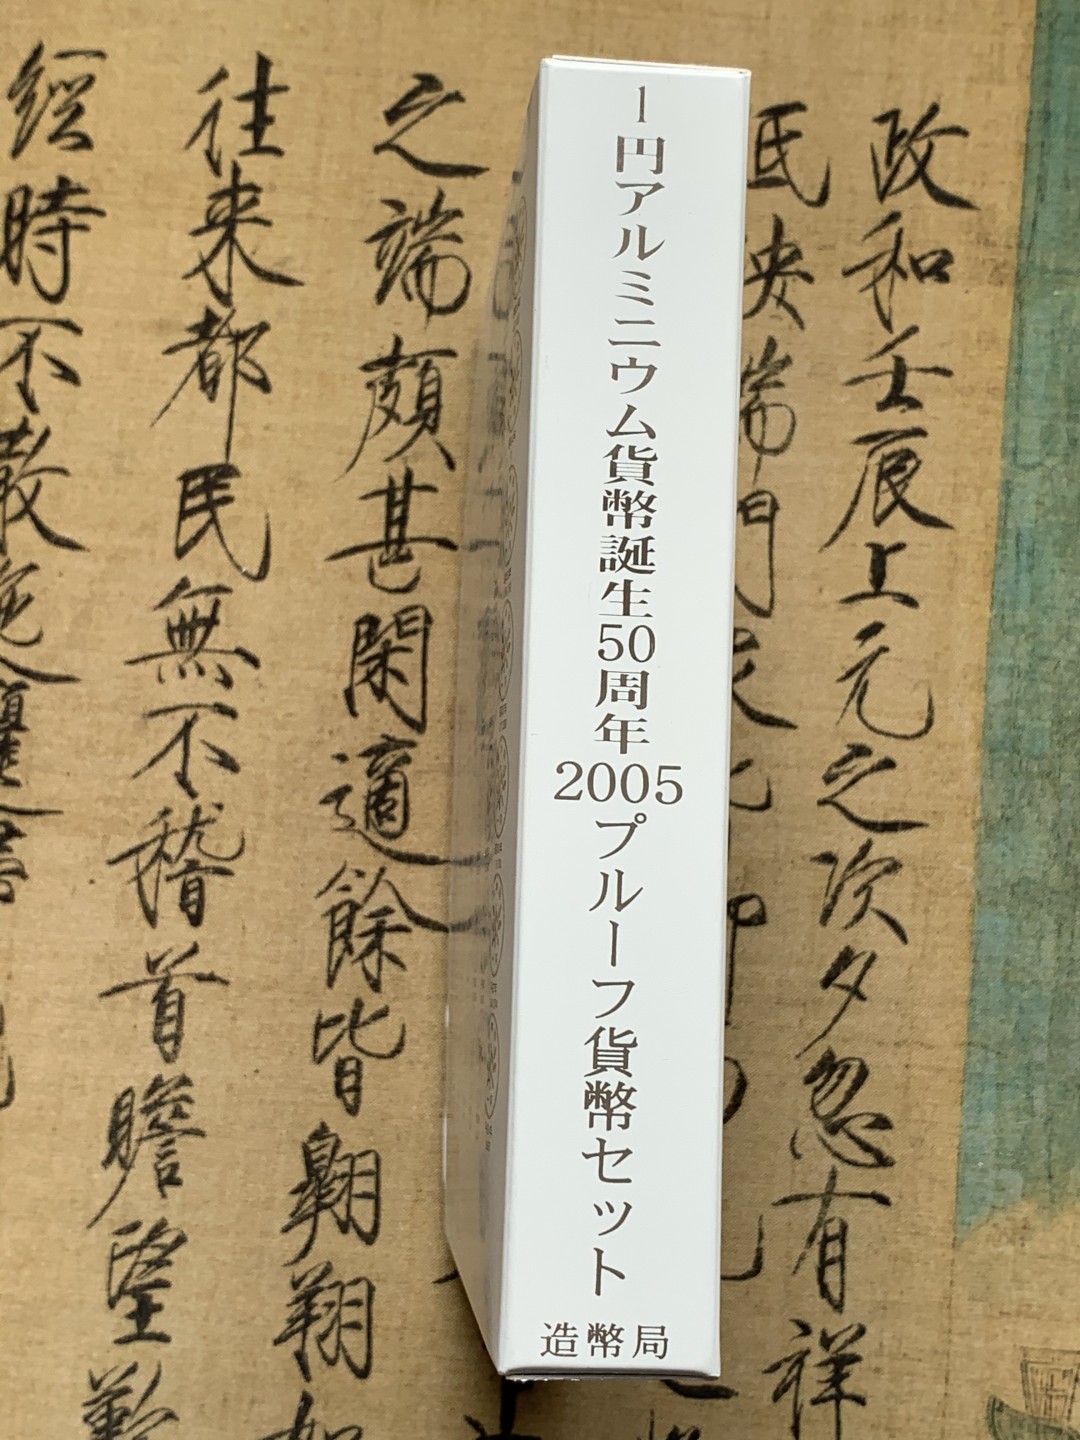 1円アルミニウム貨幣誕生50周年
2005プルーフ貨幣セット
造幣局
政和壬辰上元之次夕忽有祥
之端頗甚閑適餘皆翱翔如
往來都民無不稽首瞻望歎
經時不散